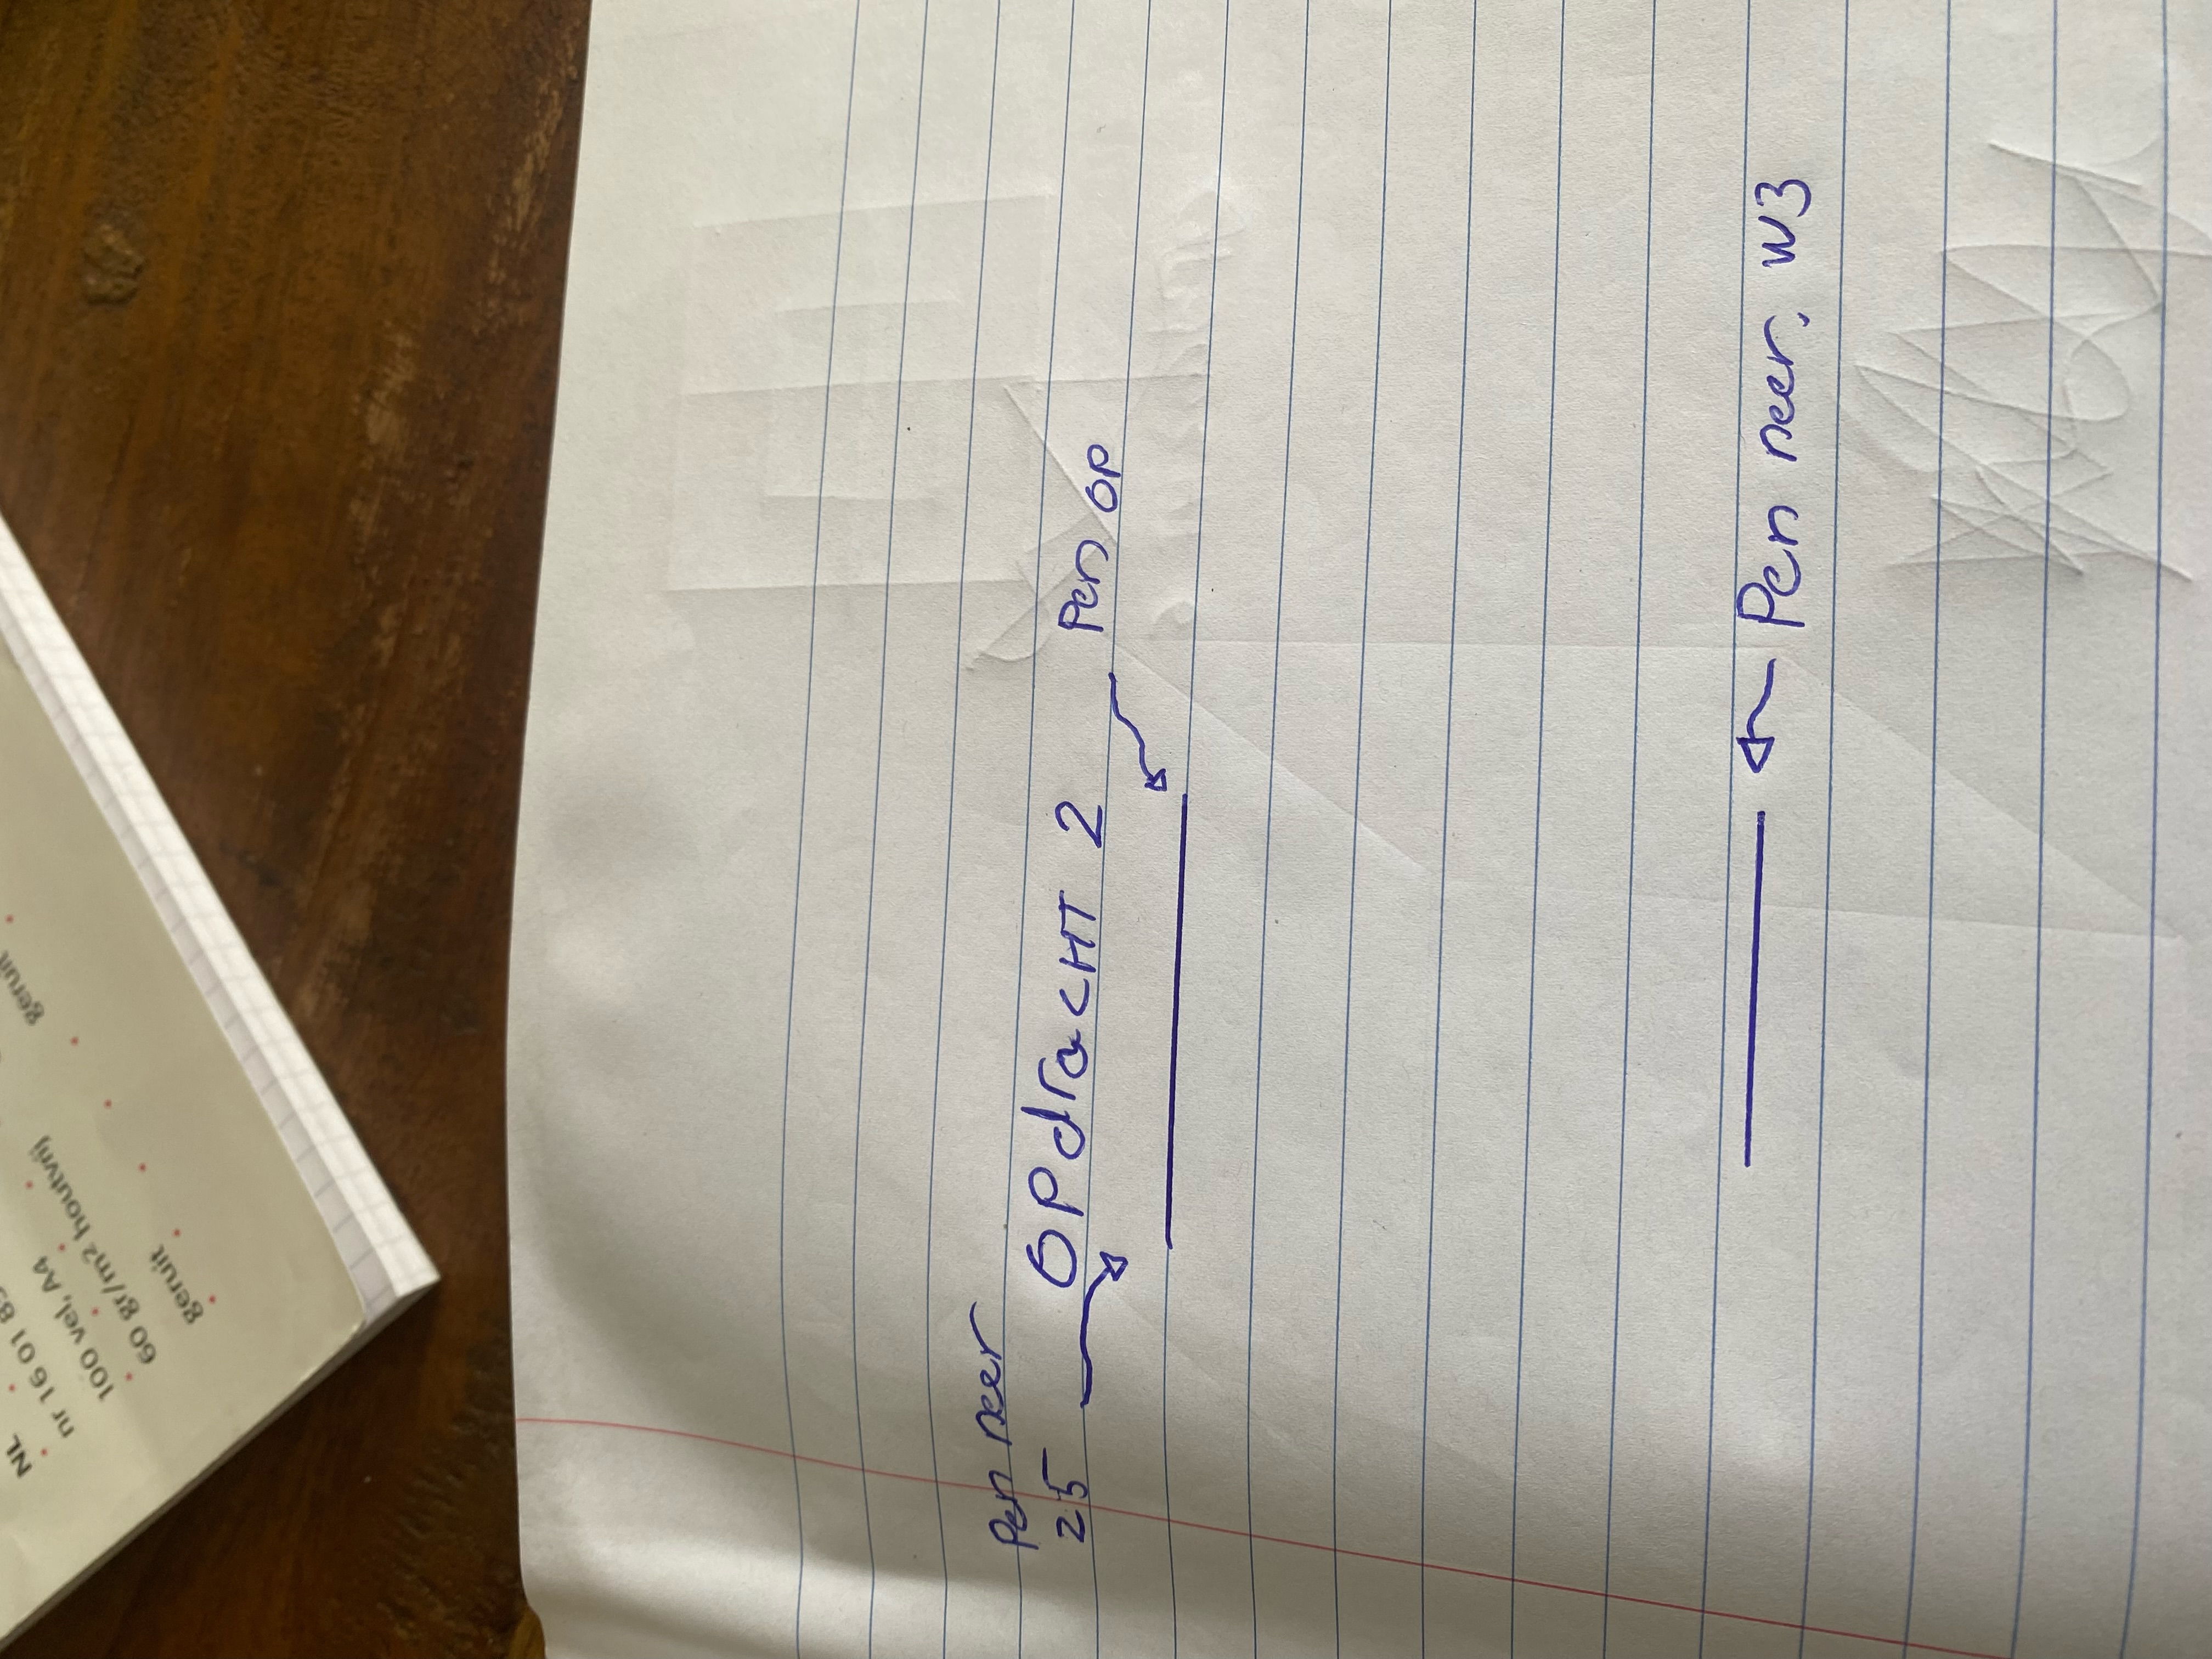 NL
nr 16 01
100 vel, A4
60 gr/m² houtvrij
geruit
geruit
Pen neer
25
OPdracHT 2
Pen OP
Pen neer. W3